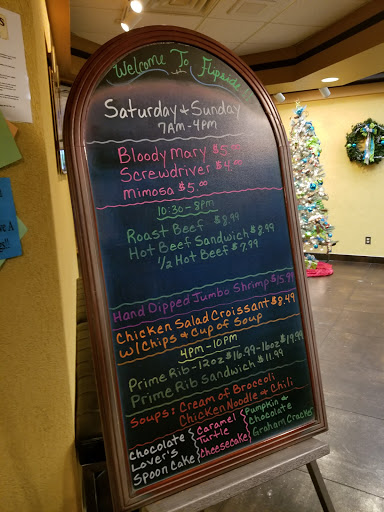 Welcome To Flipside
Saturday & Sunday
7AM-4PM
Bloody Mary $5.00
Screwdriver $4.00
mimosa $5.00
10:30-8pm
Roast Beef $8.99
Hot Beef Sandwich $8.99
1/2 Hot Beef $7.99
Hand Dipped Jumbo Shrimp $15.99
Chicken Salad Croissant $8.49
w/Chips & Cup of Soup
4PM-10PM
Prime Rib-12oz $16.99-16oz $19.99
Prime Rib Sandwich $11.99
Soups: Cream of Broccoli
Chicken Noodle & Chili
Chocolate
Lover's
Spoon Cake
Caramel
Turtle
Cheesecake
Pumpkin &
Chocolate
Graham Cracker